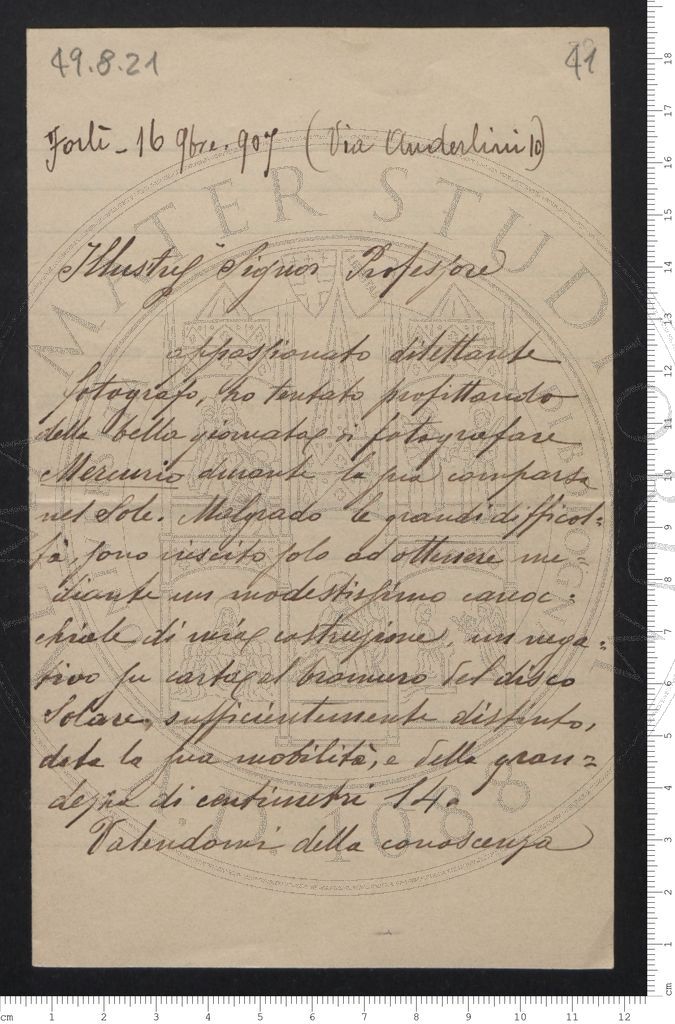 49.8.21
41
Forlì - 16 9bre. 907 (Via Anderlini 10)
Illustre Signor Professore
appassionato dilettante
fotografo, ho tentato profittando
della bella giornata di fotografare
Mercurio durante la sua comparsa
nel Sole. Malgrado le grandi difficol=
tà, sono riescito solo ad ottenere me=
diante un modestissimo canoc=
chiale di mia costruzione, un nega=
tivo su carta al bromuro del disco
Solare, sufficientemente distinto,
data la sua mobilità, e della gran=
dezza di centimetri 14.
Valendomi della conoscenza
ALMA MATER STUDIORUM
A.D. 1088